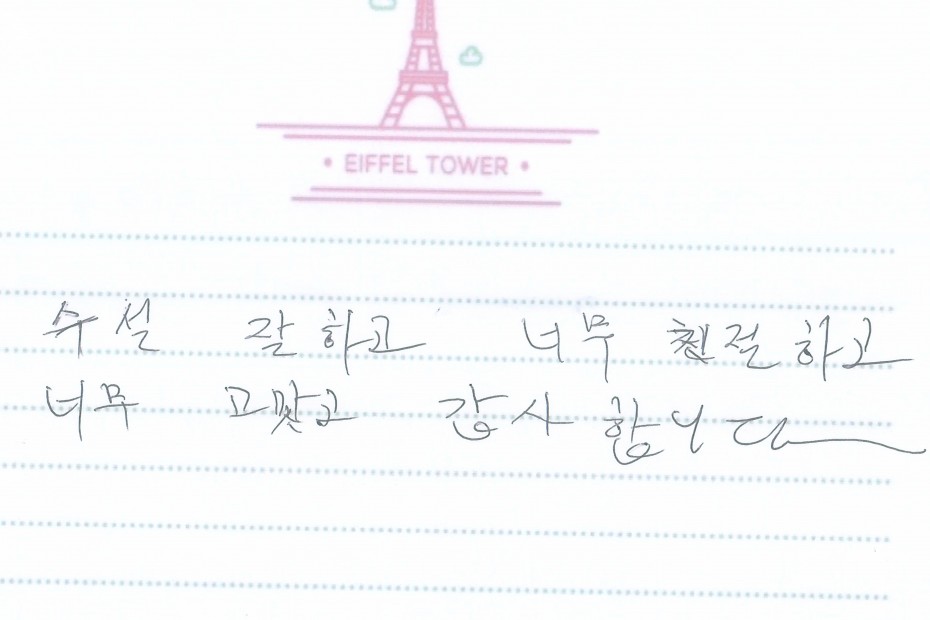 • EIFFEL TOWER •
수설 잘하고 너무 친절하고
너무 고맙고 감사합니다